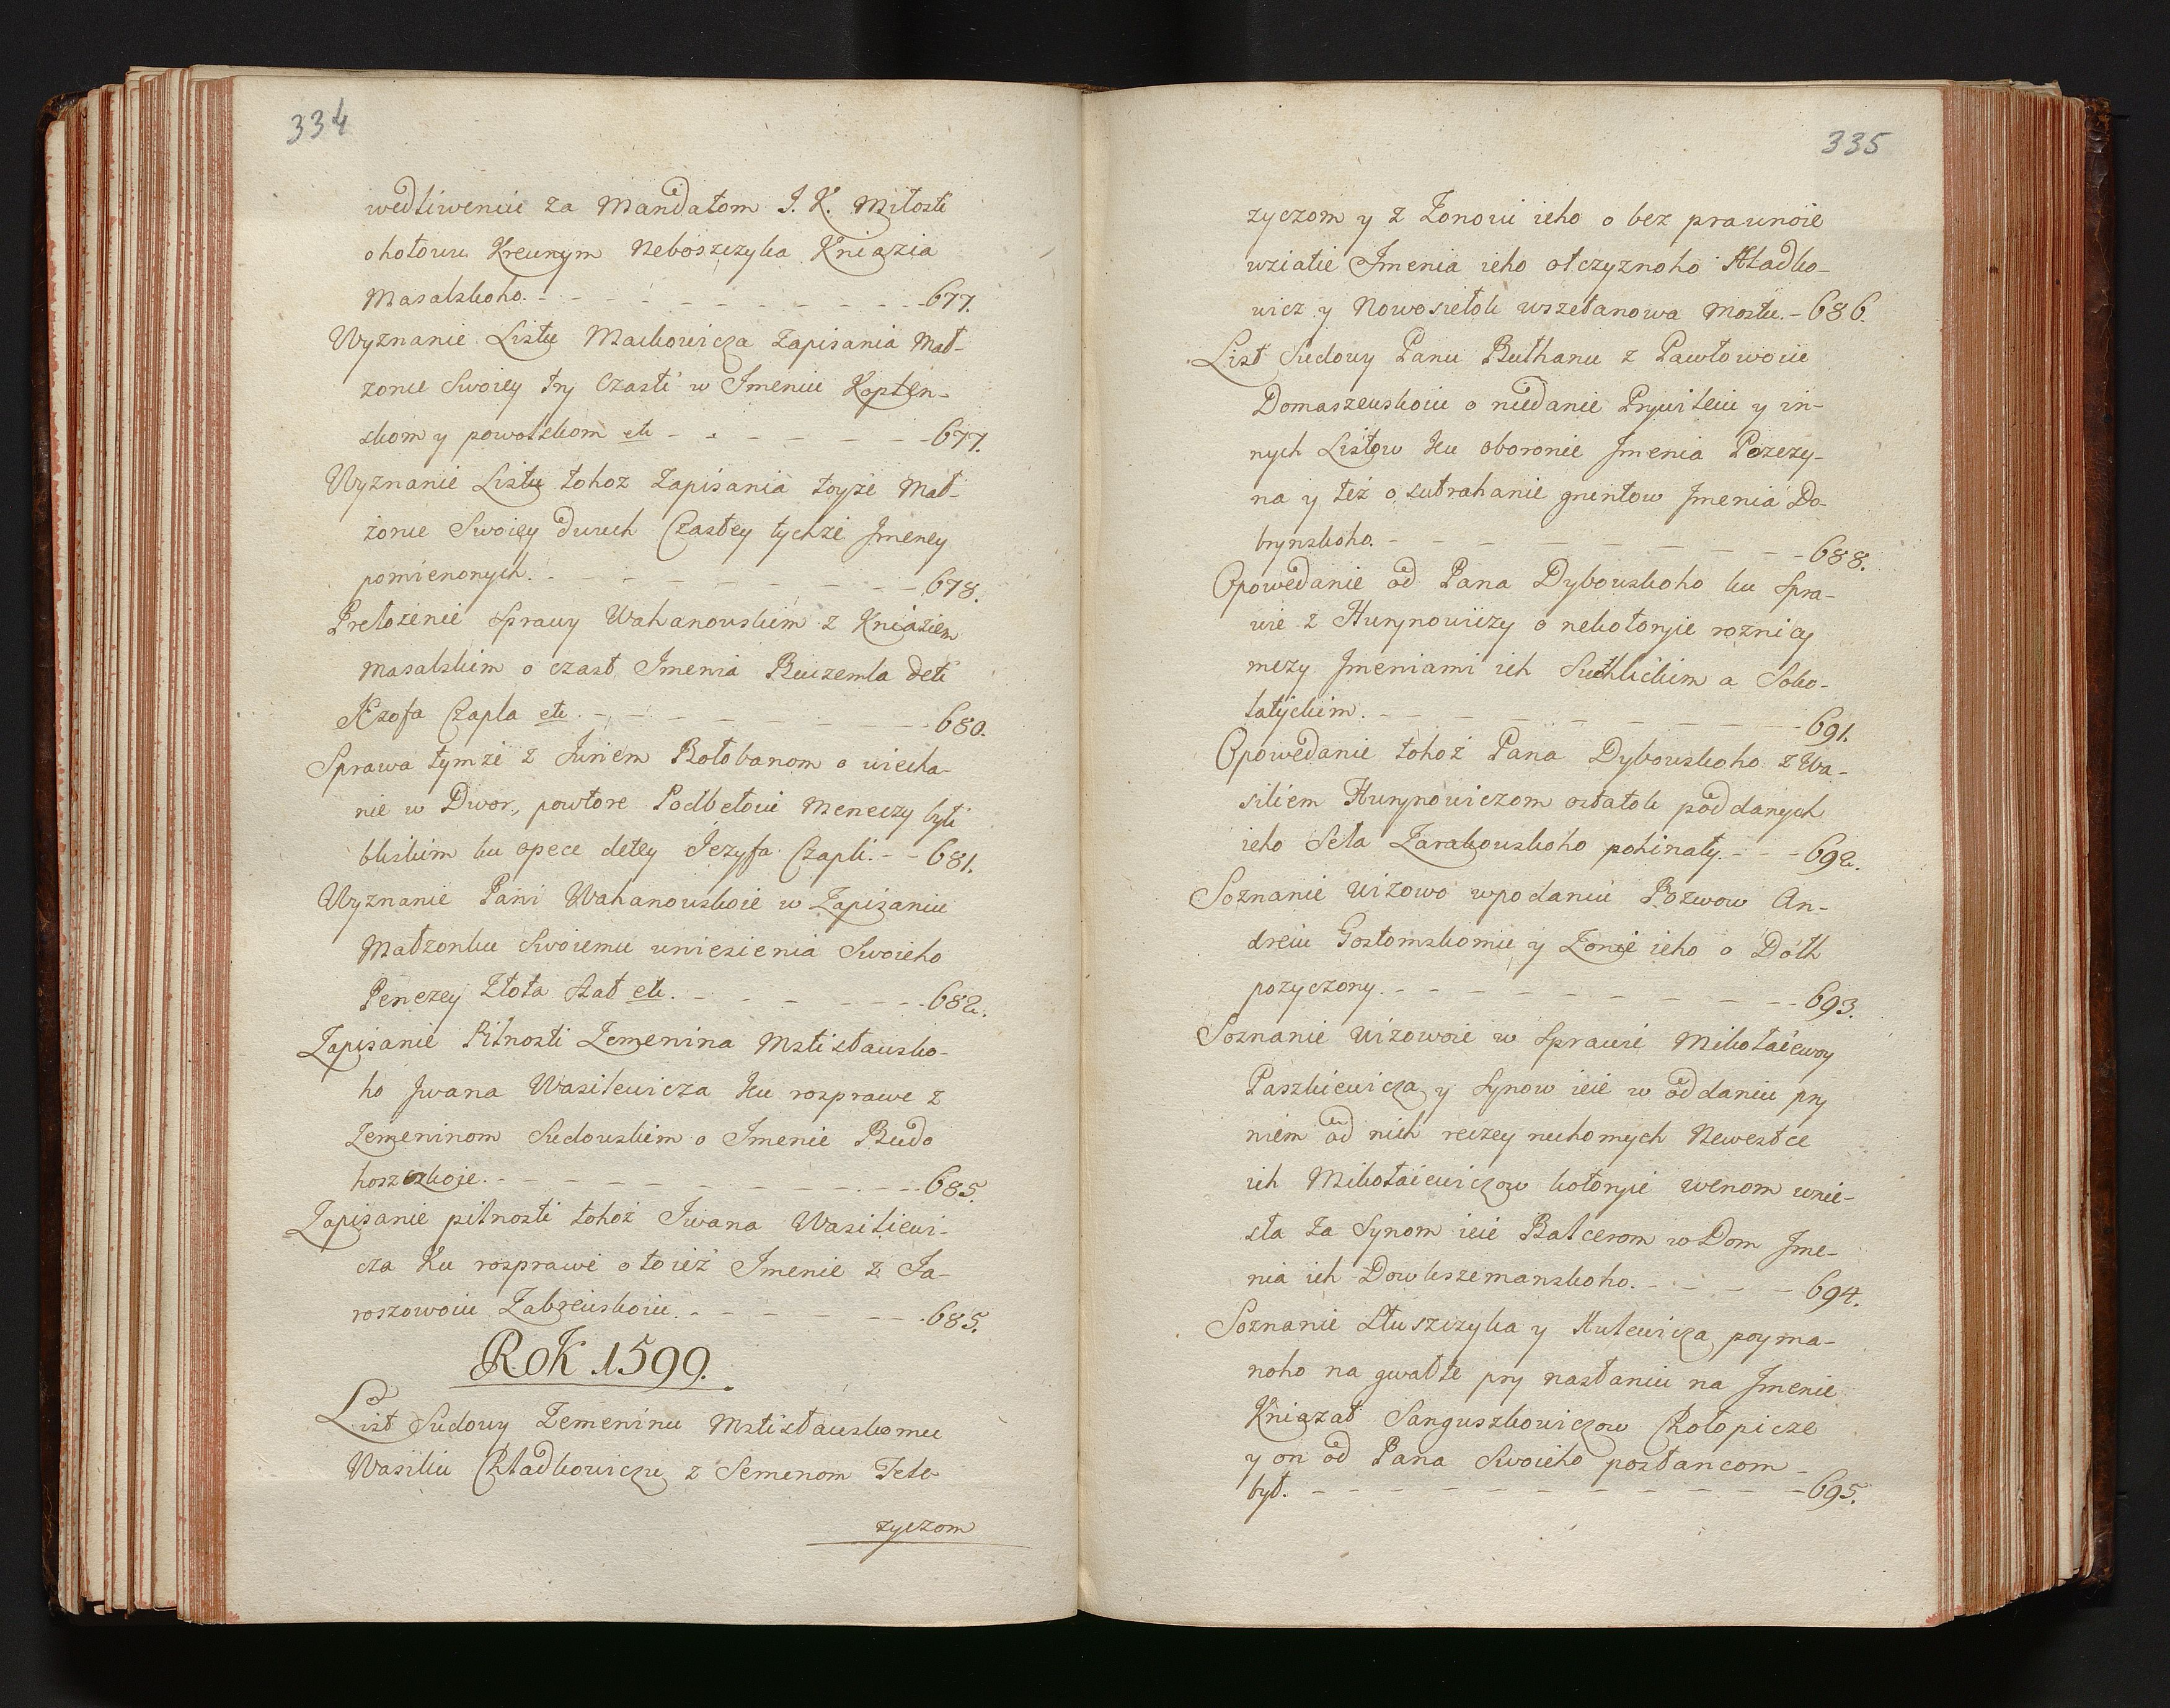 334
wedliweniu za Mandatom J. K. Miłosti
o hołowu Krewnym Neboszczyka Kniazia
Masalskoho. - - - - - - - - - - 677.
Wyznanie Listu Mackowicza Zapisania Mał-
zonce Swoiey try Czasti w Imeniu Kopten-
skom y powołskom etc - - - - - - - 677.
Wyznanie Listu tohoz Zapisania toyże Mał-
żonce Swoiey dwuch Czastey tychże Jmeney
pomienonych. - - - - - - - - - 678.
Prełożenie Sprawy Wahanowskim z Kniaziem
Masalskim o czast Imenia Buczemla deti
Jezofa Czapla etc. - - - - - - - - 680.
Sprawa tymże z Juriem Bołobanom o wiecha-
nie w Dwor, powtore Podbełowi Meneczy byti
bliskim ku opece detey Jezyfa Czapli. - - 681.
Wyznanie Pani Wahanowskoie w Zapisaniu
Małzonku Swoiemu uniesienia Swoieho
Penezey Złota Szat etc. - - - - - - 682.
Zapisanie Pilnosti Zemenina Mstisławsko-
ho Jwana Wasilewicza Ku rosprawe z
Zemeninom Sudowskim o Imenie Budo
hoszczskoje. - - - - - - - - - - 685.
Zapisanie pilnosti tohoż Iwana Wasiliewi-
cza Ku rosprawe o toież Imenie z Ja-
roszowoiu Zabreiskoiu. - - - - - - 685.
Rok 1599.
List Sudowy Zemeninu Mstisławskomu
Wasiliu Chładkowiczu z Semenom Tele
zyczom
335
zyczom y z Żonoui ieho o bez prawnoie
wziatie Jmenia ieho otczyznoho Hładko-
wicz y Nowosiełok wszełanowa Mostu. - 686.
List Sudowy Panu Buthanu z Pawłowoiu
Domaszewskoiu o niedanie Prywileiu y in-
nych Listow Ku oboronie Jmenia Pozezy-
na y też o sutrahanie gruntow Jmenia Do-
brynskoho. - - - - - - - - - - 688.
Opowedanie od Pana Dybowskoho ku Spra-
wie z Hurynowiczy o nekotoryie roznicy
mezy Jmeniami ich Suchlickim a Soko-
łatyckim. - - - - - - - - - - 691.
Opowedanie tohoż Pana Dybowskoho z Wa-
siliem Hurynowiczom ostatok poddanych
ieho Seła Zarakowskoho pohinały. - - - 692.
Soznanie Wizowo w podaniu Pozwow An-
dreiu Gostomskomu y Żonie ieho o Dołh
pozyczony. - - - - - - - - - - 693.
Soznanie Wizowoie w Sprawie Mikołaiewoy
Paszkiewicza y Synow ieie w oddaniu pry
niem od nich reczey ruchomych Newestce
ich Mikołaiewiczow kotoryie wenom wnie-
sła za Synom ieie Balcerom w Dom Jme-
nia ich Dowkszemanskoho. - - - - - 694.
Soznanie Słuszczyka y Hulewicza poyma-
noho na gwałte pry nasłaniu na Jmenie
Kniazat Sanguszkowiczow Chołopicze
y on od Pana Swoieho posłancom
był. - - - - - - - - - - - 695.